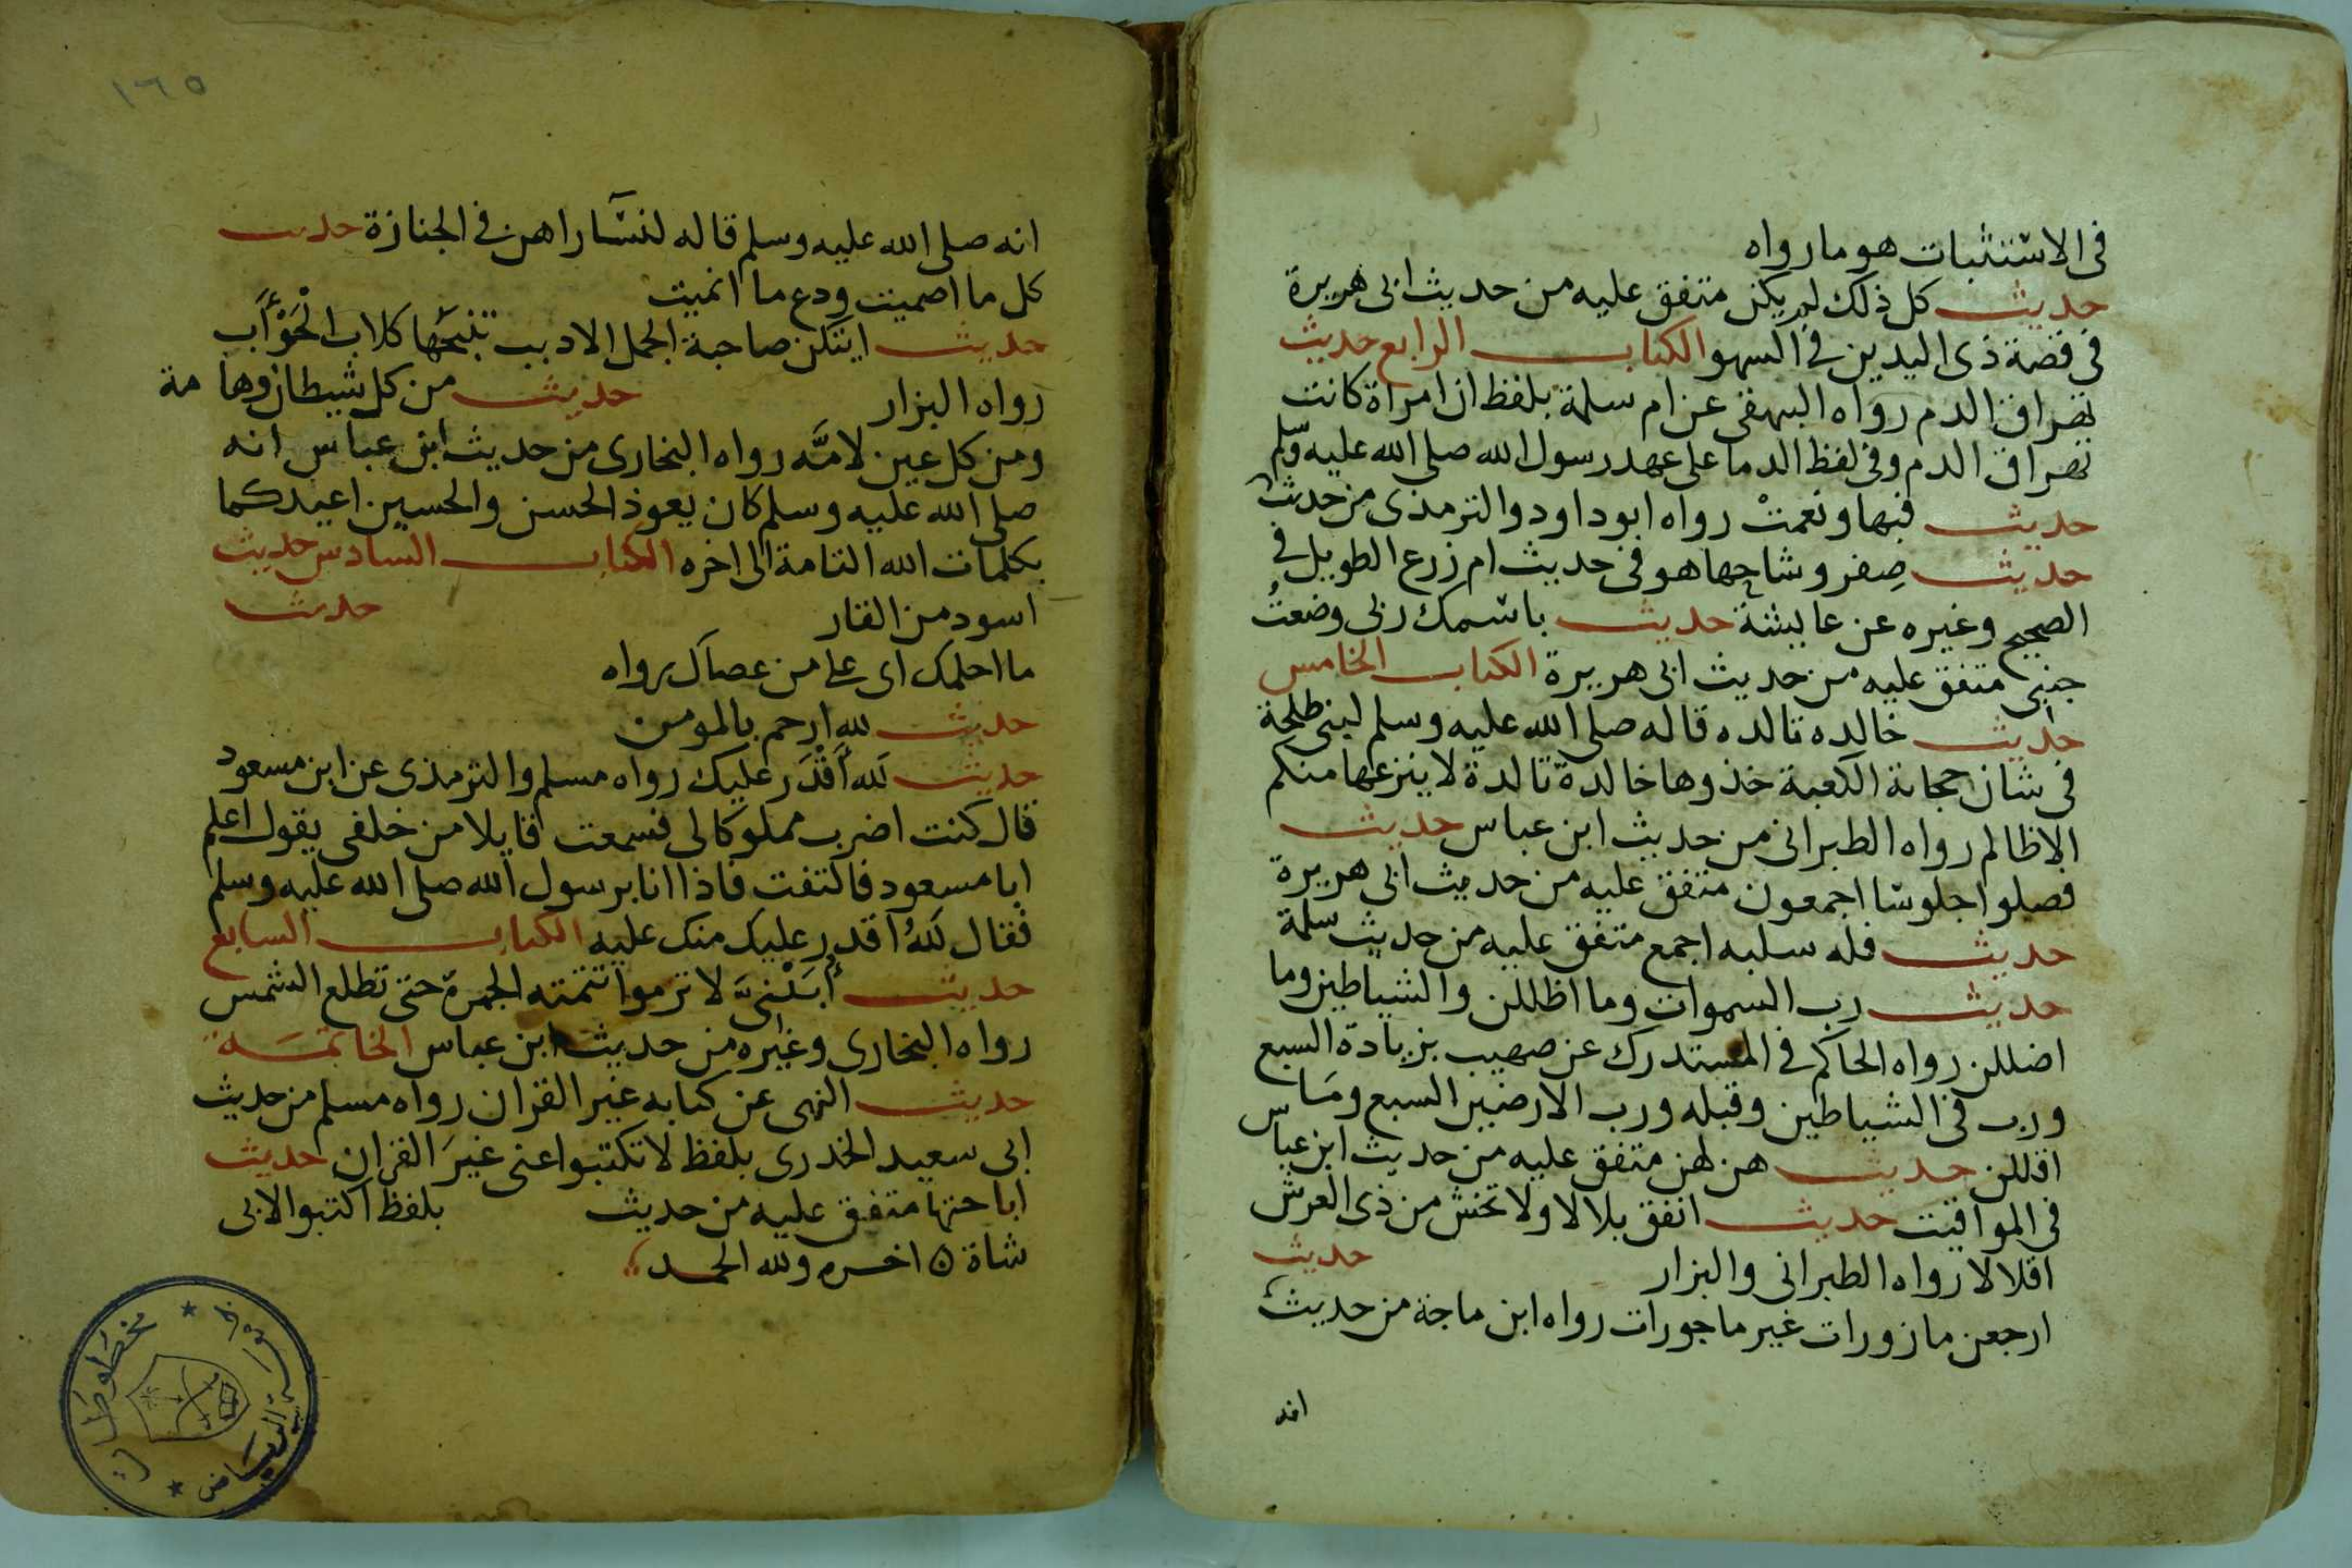 فى الاستثبات هو ما رواه
حديث كل ذلك لم يكن متفق عليه من حديث ابى هريرة
فى قصة ذى اليدين فى السهو الكتاب الرابع حديث
تهراق الدم رواه البيهقى عن ام سلمة بلفظ ان امراة كانت
تهراق الدم وفى لفظ الدما على عهد رسول الله صلى الله عليه وسلم
حديث فبها ونعمت رواه ابو داود والترمذى من حديث
حديث صفر وشاحها هو فى حديث ام زرع الطويل فى
الصحيح وغيره عن عايشة حديث باسمك ربى وضعت
جنبى متفق عليه من حديث ابى هريرة الكتاب الخامس
حديث خالده تالده قاله صلى الله عليه وسلم لبنى طلحة
فى شان حجابة الكعبة خذوها خالدة تالدة لا ينزعها منكم
الا ظالم رواه الطبرانى من حديث ابن عباس حديث
فصلوا جلوسا اجمعون متفق عليه من حديث ابى هريرة
حديث فله سلبه اجمع متفق عليه من حديث سلمة
حديث رب السموات وما اظللن والشياطين وما
اضللن رواه الحاكم فى المستدرك عن صهيب بزيادة السبع
ورب فى الشياطين وقبله ورب الارضين السبع وما
اقللن حديث هن لهن متفق عليه من حديث ابن عباس
فى المواقيت حديث انفق بلالا ولا تخش من ذى العرش
اقلالا رواه الطبرانى والبزار حديث
ارجعن مازورات غير ماجورات رواه ابن ماجة من حديث
انه
١٦٥
انه صلى الله عليه وسلم قاله لنسا راهن فى الجنازة حديث
كل ما اصميت ودع ما انميت
حديث ايتكن صاحبة الجمل الادبب تنبحها كلاب الحوأب
رواه البزار حديث من كل شيطان وهامة
ومن كل عين لامة رواه البخارى من حديث ابن عباس انه
صلى الله عليه وسلم كان يعوذ الحسن والحسين اعيذكما
بكلمات الله التامة الى اخره الكتاب السادس حديث
اسود من القار حديث
ما احلمك اى على من عصاك رواه
حديث لله ارحم بالمومن
حديث لله أقدر عليك رواه مسلم والترمذى عن ابن مسعود
قال كنت اضرب مملوكا لى فسمعت قايلا من خلفى يقول اعلم
ابا مسعود فالتفت فاذا انا برسول الله صلى الله عليه وسلم
فقال لله اقدر عليك منك عليه الكتاب السابع
حديث أبينى لا ترموا تتمته الجمرة حتى تطلع الشمس
رواه البخارى وغيره من حديث ابن عباس الخاتمة
حديث النهى عن كتابه غير القران رواه مسلم من حديث
ابى سعيد الخدرى بلفظ لا تكتبوا عنى غير القران حديث
اباحتها متفق عليه من حديث بلفظ اكتبوا لابى
شاة ٥ اخره ولله الحمد
مخطوطات
الرياض